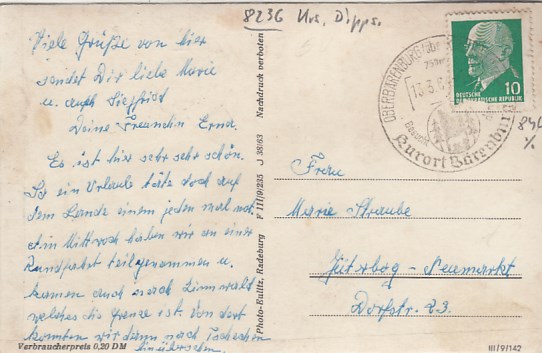 8236 Krs. Dipps.
Viele Grüße von hier
sendet Dir liebe Marie
u. auch Siegfried
Deine Freundin Erna.
Es ist hier sehr sehr schön.
So ein Urlaub täte doch auf
dem Lande einem jeden mal
Am Mittwoch haben wir an einer
Rundfahrt teilgenommen u.
kamen auch nach Zinnwald
welches die Grenze ist. Von dort
konnten wir dann nach
Verbraucherpreis 0,20 DM
Photo-Kulitz, Radeburg F III/9/235 J 38/63 Nachdruck verboten
OBERBÄRENBURG
Besucht
Kurort Bärenburg
10
DEUTSCHE
DEMOKRATISCHE REPUBLIK
Frau
Marie Straube
Jüterbog - Neumarkt
Dorfstr. 23.
III/9/142